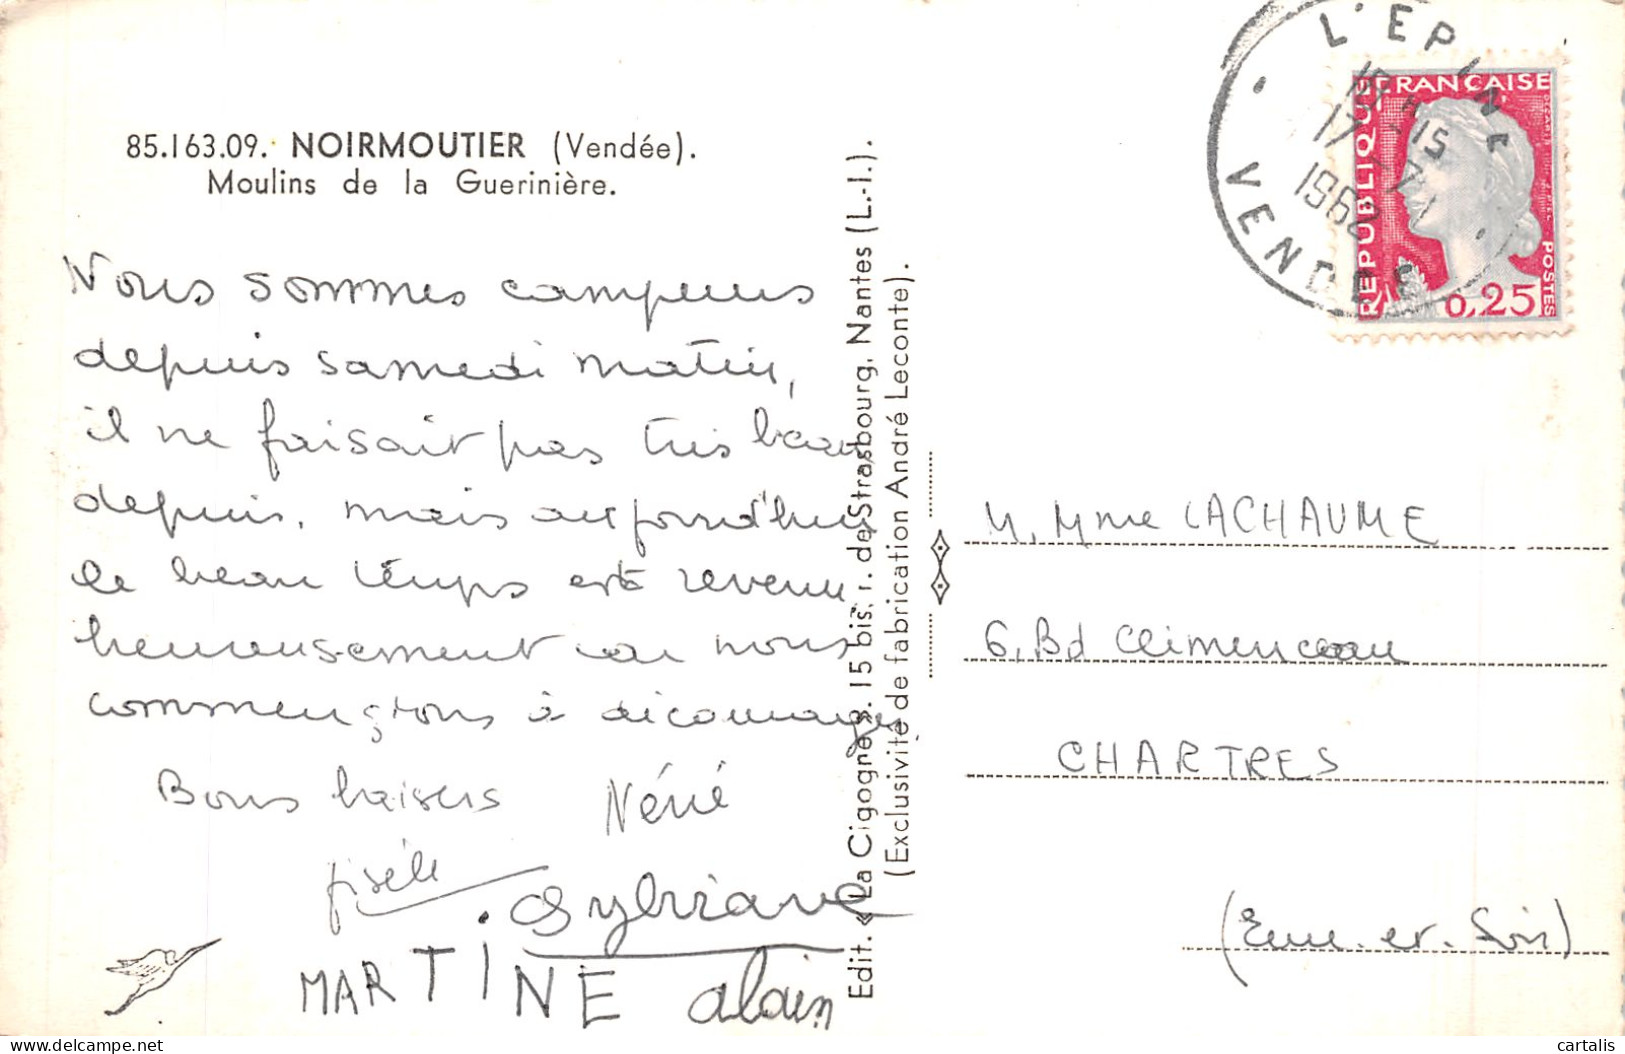 85.163.09. NOIRMOUTIER (Vendée).
Moulins de la Guerinière.
Nous sommes campeurs
depuis samedi matin,
il ne faisait pas très beau
depuis, mais aujourd'hui
le beau temps est revenu
heureusement car nous
commencions à décourager
Bons baisers Néné
gisèle
Sylviane
MARTINE alain
Edit. « La Cigogne ». 15 bis, r. de Strasbourg, Nantes (L.-I.).
(Exclusivité de fabrication André Leconte).
L'EPINE
15H15
17-7
1962
VENDEE
REPUBLIQUE FRANÇAISE
POSTES
0,25
M. Mme LACHAUME
6, Bd Clémenceau
CHARTRES
(Eure-et-Loir)
cartalis